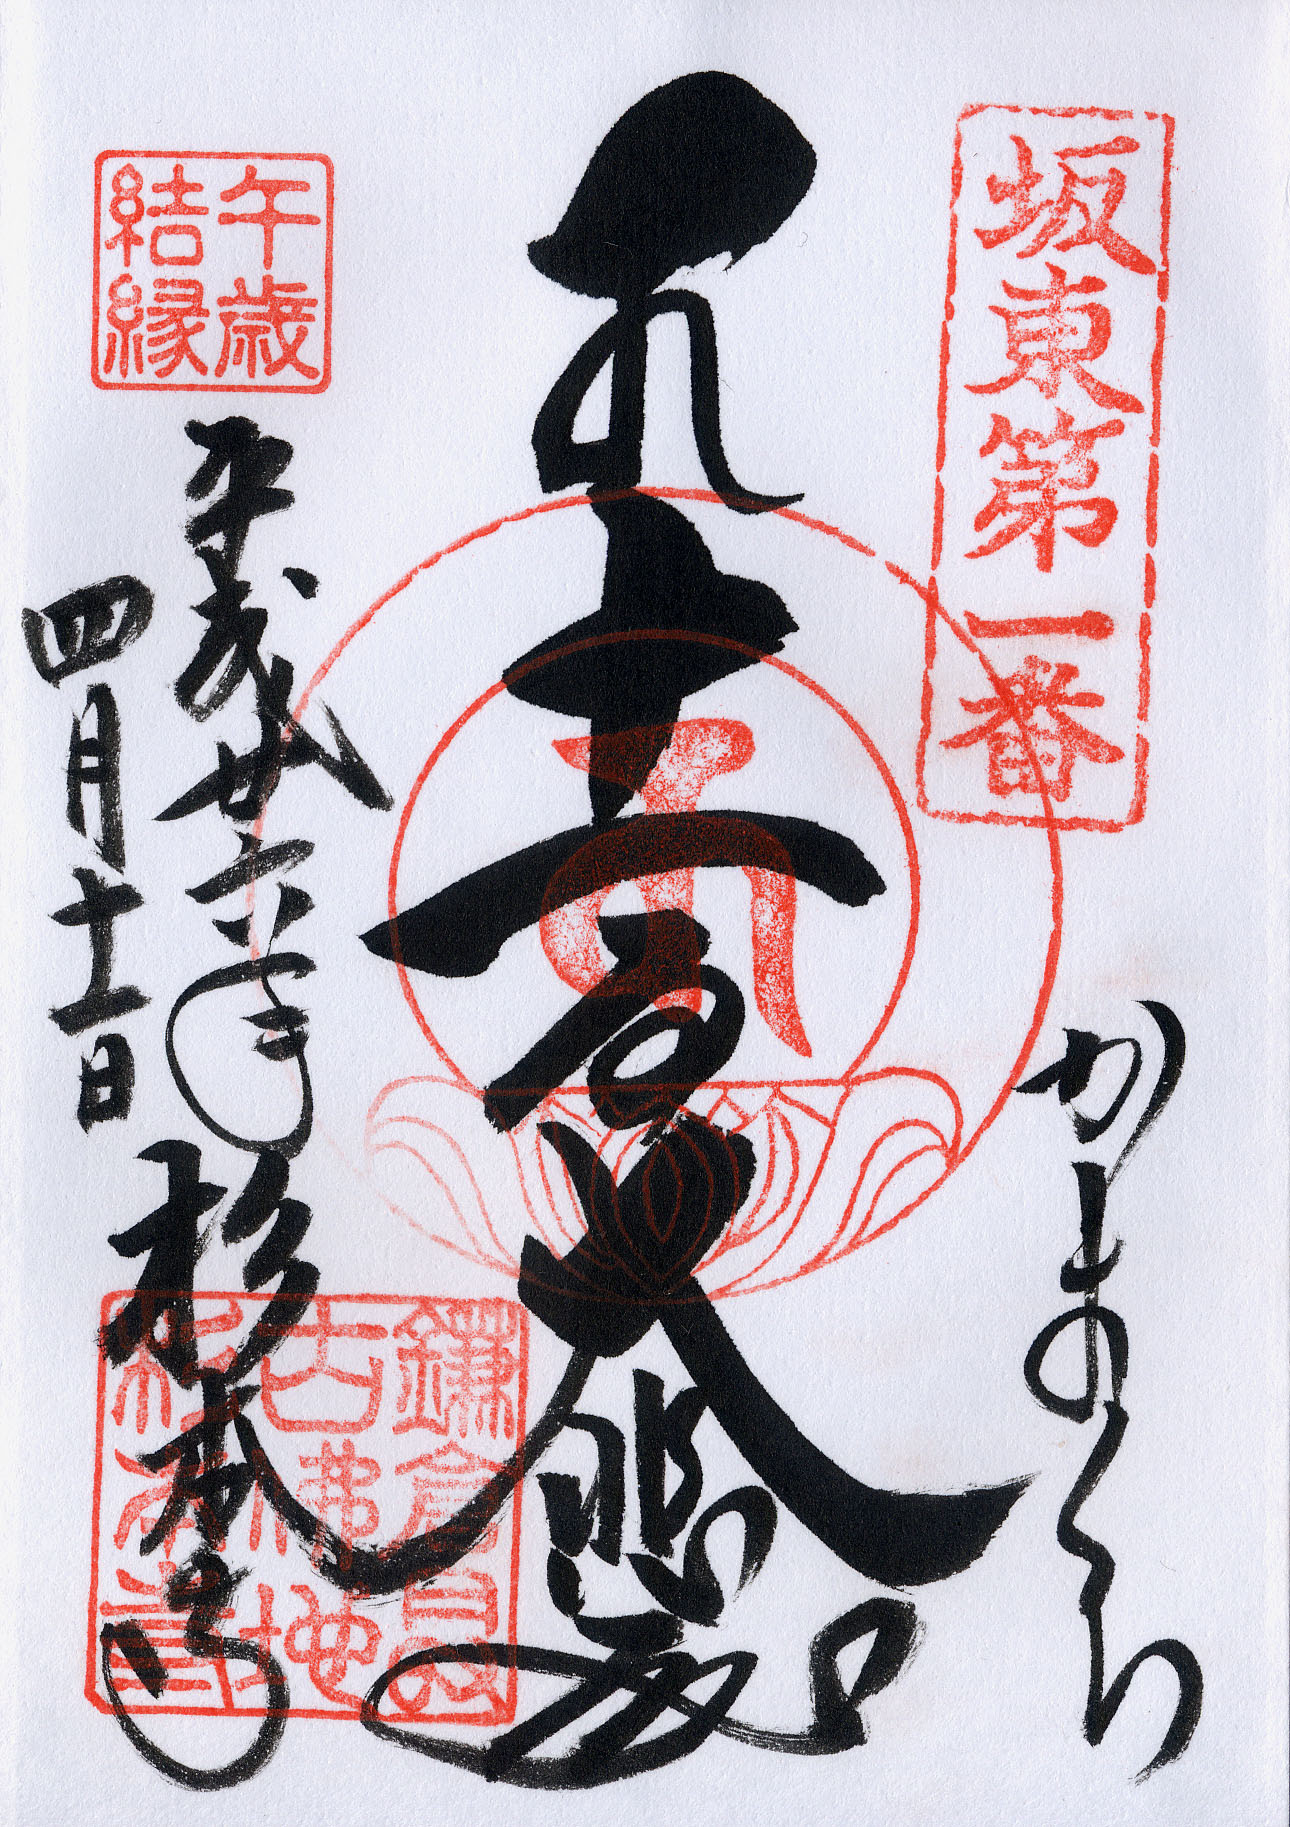 坂東第一番
かまくら
十一面大悲殿
午歳
結縁
平成廿六年
四月十一日
杉本寺
鎌倉最
古佛地
杉本寺